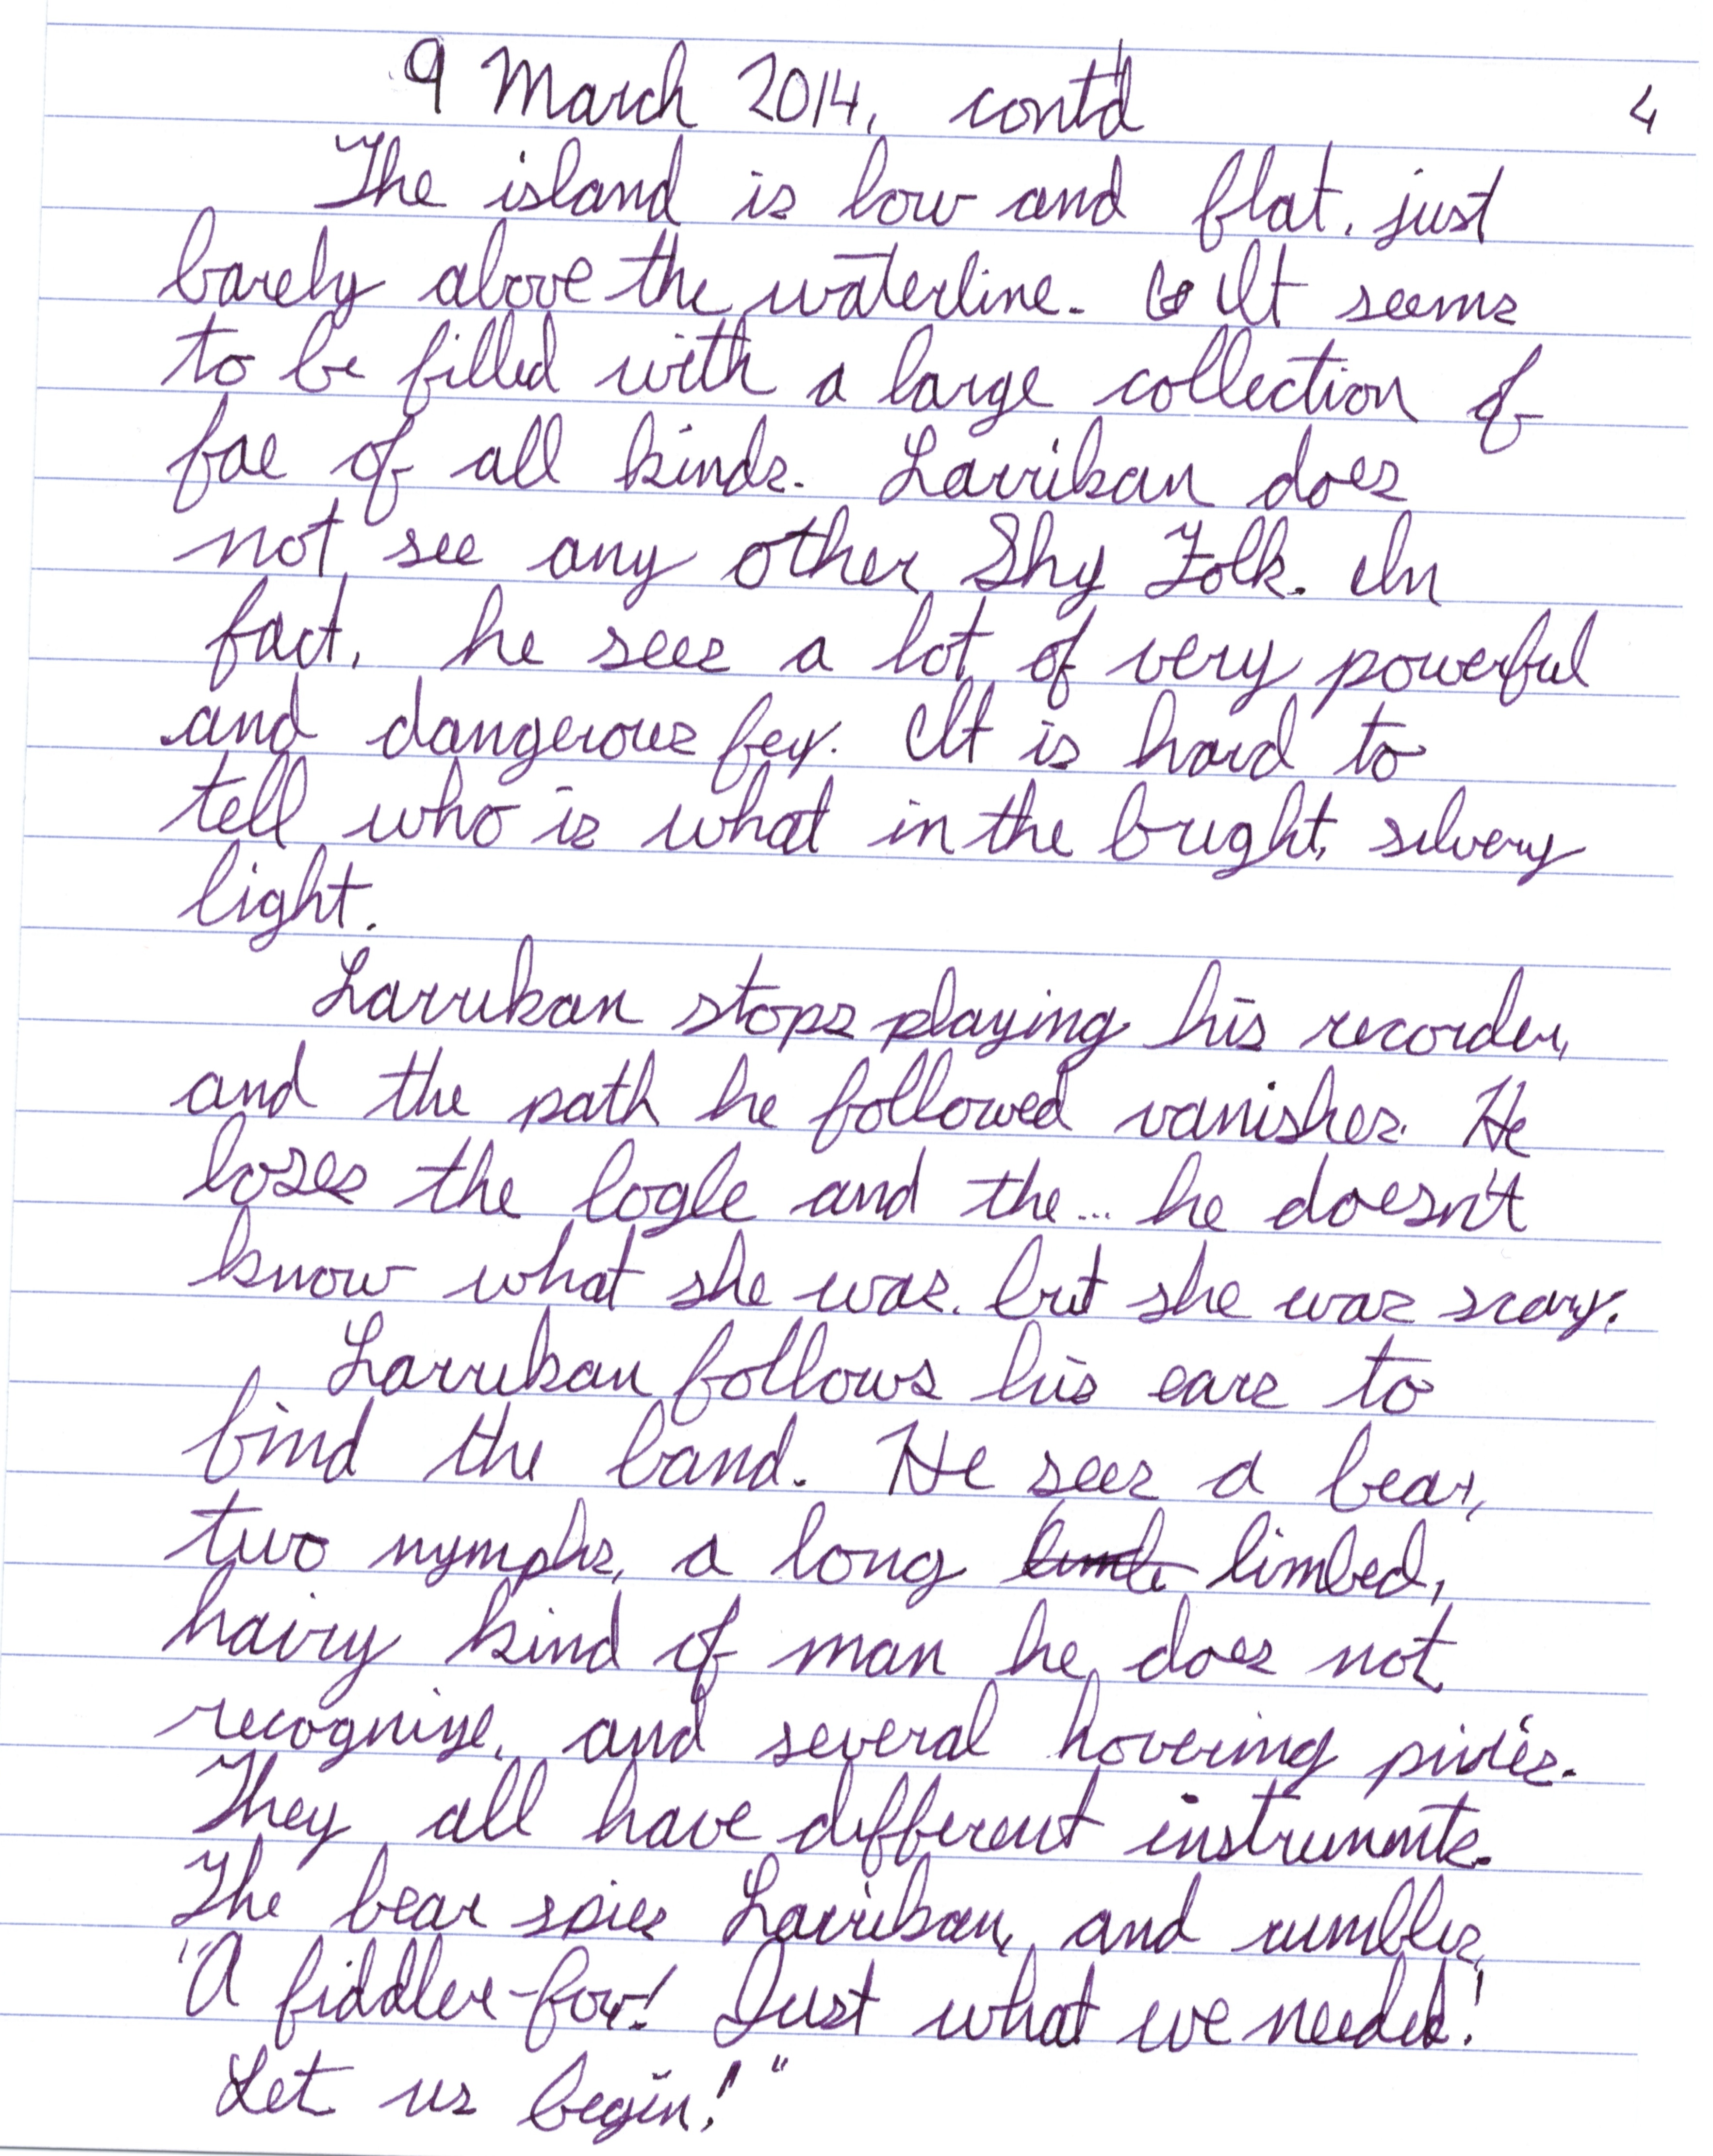 9 March 2014, cont'd 4
The island is low and flat, just
barely above the waterline. It seems
to be filled with a large collection of
fae of all kinds. Larrikan does
not see any other Shy Folk. In
fact, he sees a lot of very powerful
and dangerous fey. It is hard to
tell who is what in the bright, silvery
light.
Larrikan stops playing his recorder,
and the path he followed vanishes. He
loses the logle and the... he doesn't
know what she was, but she was scary.
Larrikan follows his ears to
find the band. He sees a bear,
two nymphs, a long limbed,
hairy kind of man he does not
recognize, and several hovering pixies.
They all have different instruments.
The bear spies Larrikan, and rumbles,
"A fiddler-fox! Just what we needed!
Let us begin!"